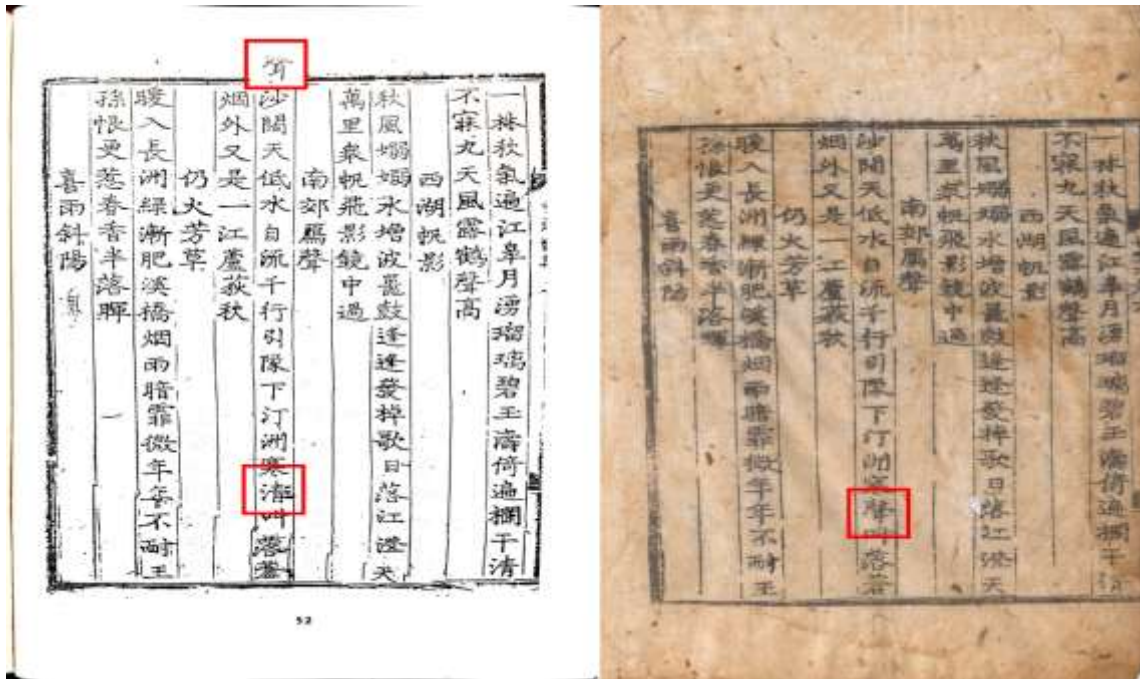 一株秋氣遍江皐月湧瑠璃碧玉濤倚遍欄干清
不寐九天風露鶴聲高
西湖帆影
秋風嫋嫋水增波鼉鼓逢逢發棹歌日落江澄天
萬里衆帆飛影鏡中過
南郊鴈聲
沙闊天低水自流千行引隊下汀洲寒叫落蒼
烟外又是一江蘆荻秋
仍火芳草
暖入長洲綠漸肥溪橋烟雨暗霏微年年不耐王
孫恨更惹春香半落暉
喜雨斜陽
52
一株秋氣遍江皐月湧瑠璃碧玉濤倚遍欄干清
不寐九天風露鶴聲高
西湖帆影
秋風嫋嫋水增波鼉鼓逢逢發棹歌日落江澄天
萬里衆帆飛影鏡中過
南郊鴈聲
沙闊天低水自流千行引隊下汀洲寒聲叫落蒼
烟外又是一江蘆荻秋
仍火芳草
暖入長洲綠漸肥溪橋烟雨暗霏微年年不耐王
孫恨更惹春香半落暉
喜雨斜陽